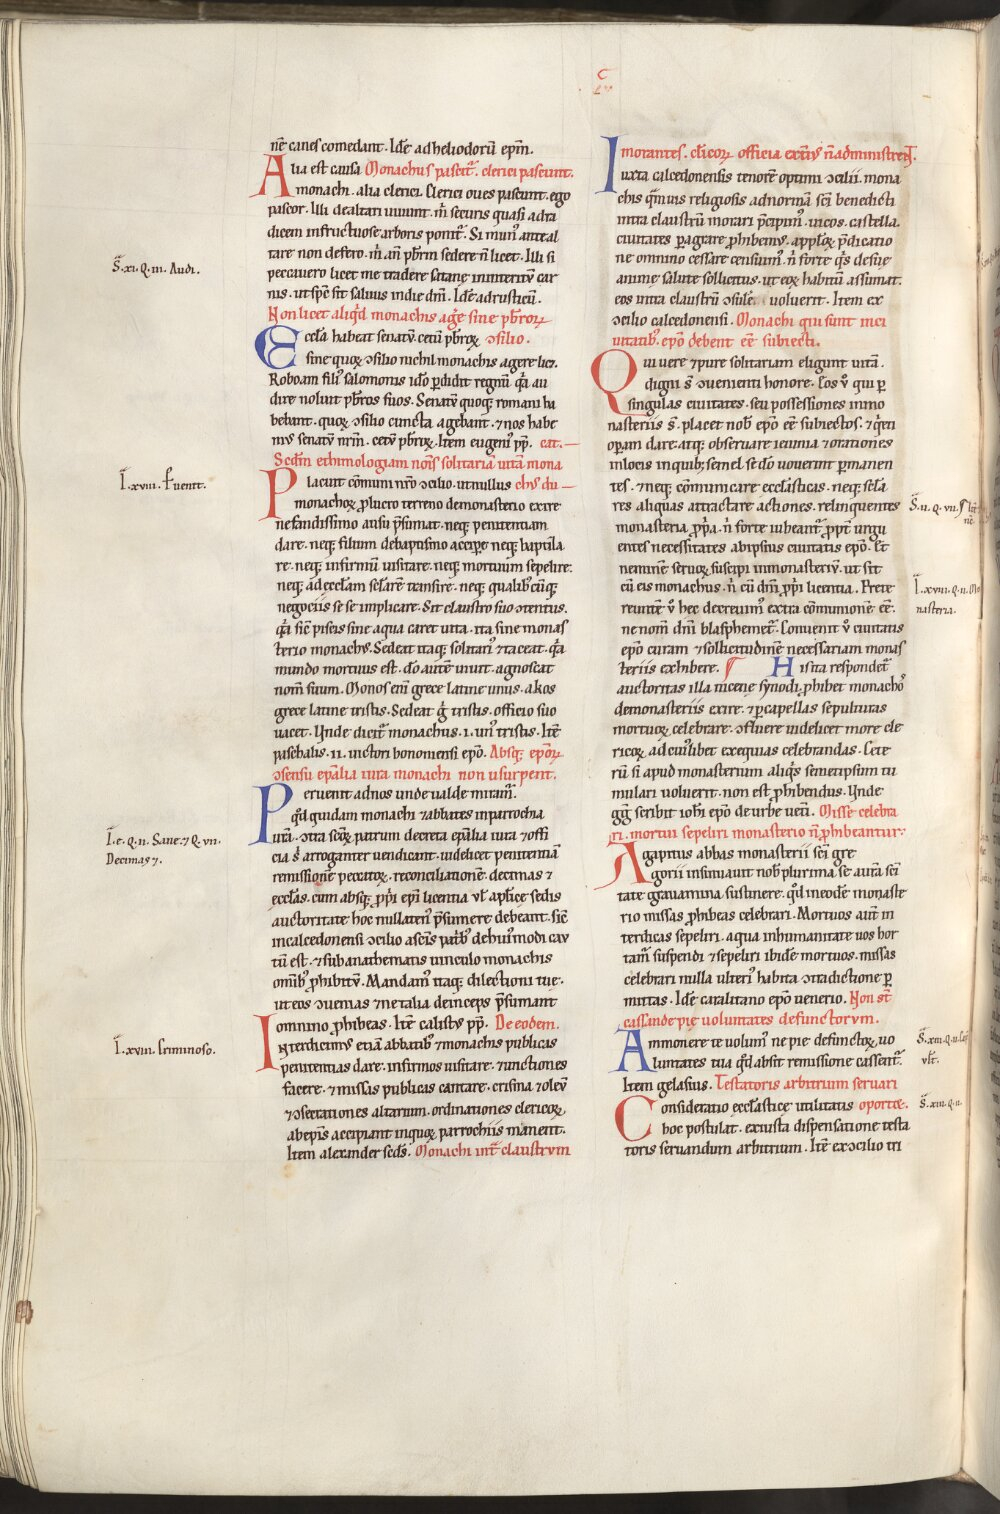 C
nē canes comedant. Idē ad heliodorū epm̄.
Alia est causa Monachus pascit᷑. clerici pascunt.
monachi. alia clerici. Clerici oves pascunt. ego
pascor. Illi de altari vivunt. m̄ securis quasi ad ra
dicem infructuose arboris ponit᷑. Si mun᷒ ante al
tare non defero. m̄ an̄ pb̄rm sedere n̄ licet. Illi si
peccavero licet me tradere satane in interitū car
nis. ut sp̄c sit salvus in die dn̄i. Idē ad rusticū.
Non licet aliqd monachis age sine pb̄roꝝ
Eccl̄a habeat senatū cetū pb̄roꝝ ↄsilio.
sine quoꝝ ↄsilio nichil monachis agere licꝫ.
Roboam fili᷒ salomonis idō ꝑdidit regnū. q̄a au
dire noluit pb̄ros suos. Senatū quoqꝫ romani ha
bebant. quoꝝ ↄsilio cuncta agebant. ⁊ nos habe
mus senatū nr̄m. cetū pb̄roꝝ. Item eugeni᷒ pp̄. cat.
Scd̄m ethimologiam nōis solitariā vitā mona
Placuit cōmuni nr̄o ↄcilio. ut nullus chꝰ du
monachoꝝ ꝓ lucro terreno de monasterio exire
nefandissimo ausu p̄sumat. neqꝫ penitentiam
dare. neqꝫ filium de baptismo accipe. neqꝫ baptiza
re. neqꝫ infirmū visitare. neqꝫ mortuum sepelire.
neqꝫ ad eccl̄am sc̄larē transire. neqꝫ qualib᷒cūqꝫ
negociis se se implicare. Sit claustro suo ↄtentus.
q̄a sic̄ piscis sine aqua caret vita. ita sine monas
terio monachꝰ. Sedeat itaqꝫ solitari᷒ ⁊ taceat. q̄a
mundo mortuus est. dō autē vivit. agnoscat
nom̄ suum. Monos eni grece latine unus. akos
grece latine tristis. Sedeat g̊ tristis. officio suo
vacet. Unde dicit᷑ monachus .i. un᷒ tristis. Itē
paschalis .ii. victori bononiensi epō. Absqꝫ epōrꝝ
ↄsensu epālia iura monachi non usurpent.
Pervenit ad nos unde valde miram᷒.
qd quidam monachi ⁊ abbates in parrochia
vr̄a. ↄtra scōꝝ patrum decreta epālia iura ⁊ offi
cia sī arroganter vendicant. videlicet penitentiā
remissionē peccatoꝝ. reconciliationē. decimas ⁊
eccl̄as. cum absqꝫ ꝓprii epi licentia vl̄ aplice sedis
auctoritate hoc nullaten᷒ p̄sumere debeant. sic̄
in calcedonensi ↄcilio ascis̄ patrib᷒ dehui᷒modi cau
tū est. ⁊ sub anathematis vinculo monachis
omib᷒ ꝓhibitū. Mandam᷒ itaqꝫ dilectioni tue.
ut eos ↄvenias ⁊ ne talia deinceps p̄sumant
omnino ꝓhibeas. Itē calistꝰ pp̄. De eodem.
Interdicimꝰ etiā abbatib᷒ ⁊ monachis publicas
penitentias dare. infirmos visitare. ⁊ unctiones
facere. ⁊ missas publicas cantare. crisma ⁊ oleū
⁊ ↄsecrationes altarium. ordinationes clericoꝝ
ab epis accipiant in quoꝝ parrochiis manent.
Item alexander scds̄. Monachi int᷑ claustrum
morantes. cl̄icoꝝ officia extius n̄ administrent.
Iuxta calcedonensis tenorē optimi ↄcilii. mona
chis q̄mvis religiosis ad normā sc̄i benedicti
intra claustrū morari p̄cipim᷒. vicos. castella.
civitates ꝑagrare ꝓhibemꝰ. a p̄dicatio
ne omnino cessare censuim᷒. n̄ forte q̄s de sue
anime salute sollicitus. ut eoꝝ habitū assumat.
eos intra claustrū ↄsulē voluerit. Item ex
ↄcilio calcedonensi. Monachi qui sunt in ci
vitatib᷒. epō debent ēe subiecti.
Qui vere ⁊ pure solitariam eligunt vitā.
digni s̄ ↄvenienti honore. Eos v̊ qui ꝑ
singulas civitates. seu possessiones in mo
nasteriis s̄. placet nob᷒ epō ēe subiectos. ⁊ q̄eti
opam dare. atqꝫ observare ieiunia ⁊ orationes
in locis in quib᷒ semel se dō voverunt permanen
tes. ⁊ neqꝫ cōmunicare eccl̄asticas. neqꝫ sc̄la
res aliquas attractare actiones. relinquentes
monasteria ꝓpria. n̄ forte iubeant᷑ ꝓpt᷑ urgu
entes necessitates ab ipsius civitatis epō. Et
neminē servoꝝ suscipi in monasteriū. ut sit
cū eis monachus. n̄ cū dn̄i ꝓprii licentia. Prete
reuntē v̊ hec decretum extra cōmunionē ēe.
ne nom̄ dn̄i blasphemet᷑. Convenit v̊ civitatis
epō curam ⁊ sollicitudinē necessariam monas
teriis exhibere. His ita respondet᷑
auctoritas illa nicene synodi ꝓhibet monacho᷒
de monasteriis exire. ⁊ ꝑ capellas sepulturas
mortuoꝝ celebrare. ↄfluere videlicet more cle
ricoꝝ. ad cui᷒libet exequias celebrandas. Cete
rū si apud monasterium aliq̄s semetipsum tu
mulari voluerit. non est ꝓhibendus. Unde
gg̊ scribit ioh̄i epō de urbe veni. Misse celebra
ri. mortui sepeliri monasterio n̄ ꝓhibeantur.
Agapitus abbas monasterii sc̄i gre
gorii insinuavit nob᷒ plurima se a vr̄a sc̄i
tate gravamina sustinere. qd in eodē monaste
rio missas ꝓhibeas celebrari. Mortuos aut̄ in
terdicas sepeliri. a qua inhumanitate vos hor
tam᷒ suspendi ⁊ sepeliri ibidē mortuos. missas
celebrari nulla ulteri᷒ habita ↄtradictione ꝑ
mittas. Idē caralitano epō venerio. Non st̄
cassande pie voluntates defunctorum.
Ammonere te volum᷒ ne pie defunctoꝝ vo
luntates tua qd absit remissione cassent᷑.
Item gelasius. Testatoris arbitrium servari
Consideratio eccl̄astice utilitatis oportꝫ.
hoc postulat. ex iusta dispensatione testa
toris servandum arbitrium. Itē ex ↄcilio tri
S̄. xi. Q. iii. Audi.
I. xviii. Fuerit.
I. e. Q. ii. Sane. ⁊ Q. vii.
Decimas ⁊.
I. xviii. Criminoso.
S̄. ii. Q. vii.
I. xviii. Q. ii. Mo
nasteria.
S̄. xiii. Q. ii.
vlt̄.
S̄. xiii. Q. ii.